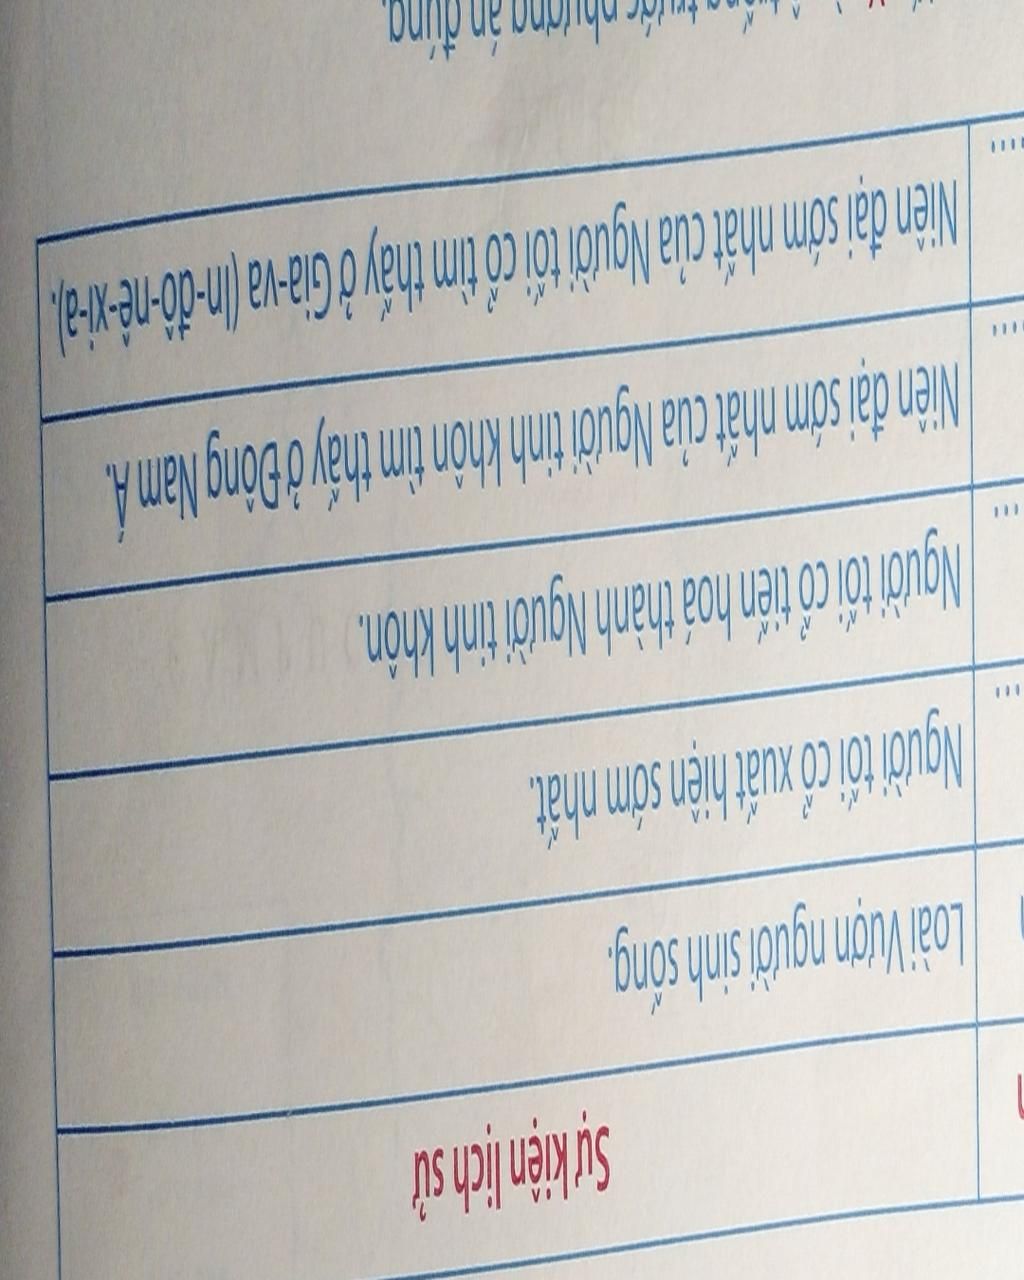 Sự kiện lịch sử
Loài Vượn người sinh sống.
Người tối cổ xuất hiện sớm nhất.
... Người tối cổ tiến hoá thành Người tinh khôn.
... Niên đại sớm nhất của Người tinh khôn tìm thấy ở Đông Nam Á.
.... Niên đại sớm nhất của Người tối cổ tìm thấy ở Gia-va (In-đô-nê-xi-a).
trước phương án đúng.